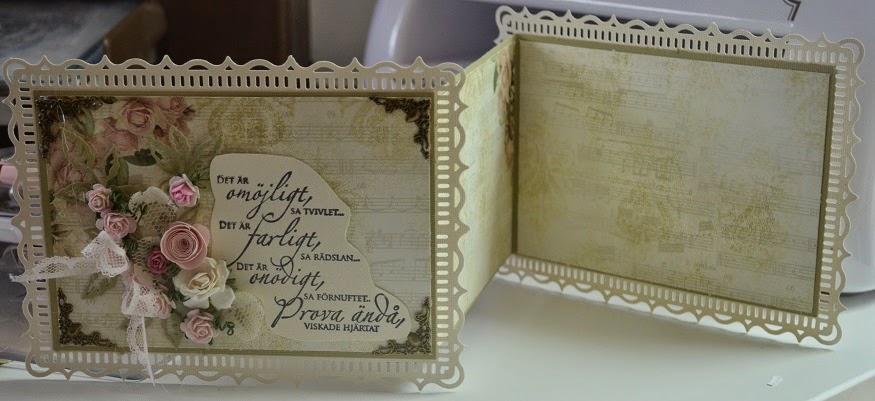 DET ÄR
omöjligt,
SA TVIVLET...
DET ÄR
farligt,
SA RÄDSLAN...
DET ÄR
onödigt,
SA FÖRNUFTET...
Prova ändå,
VISKADE HJÄRTAT